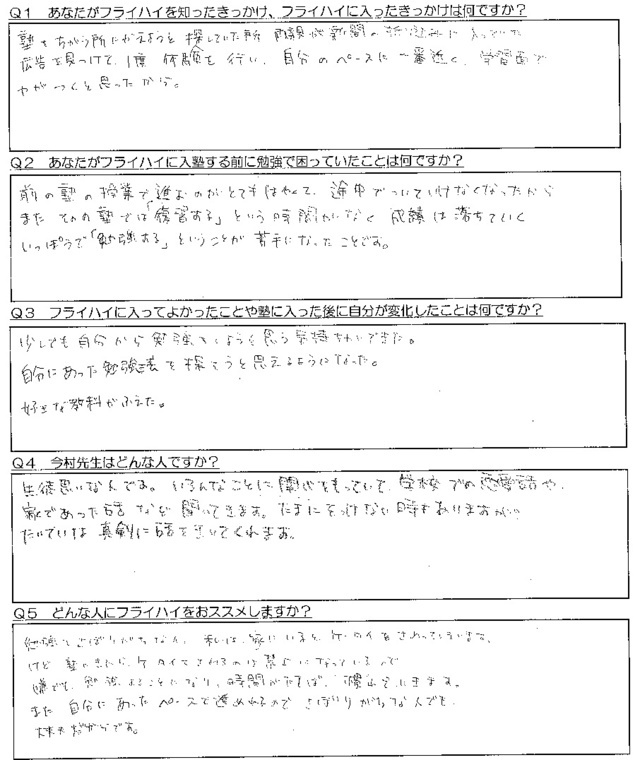 Q1 あなたがフライハイを知ったきっかけ、フライハイに入ったきっかけは何ですか?
塾をちがう所にかえようと探していた所 両親が新聞の折込みに入っていた
広告を見つけて、1度 体験を行い、自分のペースに一番近く、学習面で
力がつくと思ったから。
Q2 あなたがフライハイに入塾する前に勉強で困っていたことは何ですか?
前の塾の授業で進むのがとてもはやくて、途中でついていけなくなったから
また その塾では「復習する」という時間がなく 成績は落ちていく
いっぽうで「勉強する」ということが苦手になったことです。
Q3 フライハイに入ってよかったことや塾に入った後に自分が変化したことは何ですか?
少しでも自分から勉強をしようと思う気持ちがでてきた。
自分にあった勉強法を探そうと思えるようになった。
好きな教科がふえた。
Q4 今村先生はどんな人ですか?
生徒思いな人です。いろんなことに関心をもっていて、学校での恋愛話や、
家であった話など 聞いてきます。たまにそっけない時もありますが
たいていは真剣に話をきいてくれます。
Q5 どんな人にフライハイをおススメしますか?
勉強をさぼりがちな人。私は、家にいると、ケータイをさわってしまいます。
けど 塾にきたら、ケータイをさわるのは禁止になっているので
嫌でも、勉強することになり、時間がたてば、慣れていきます。
また 自分にあったペースで進めれるので さぼりがちな人でも
大丈夫だからです。